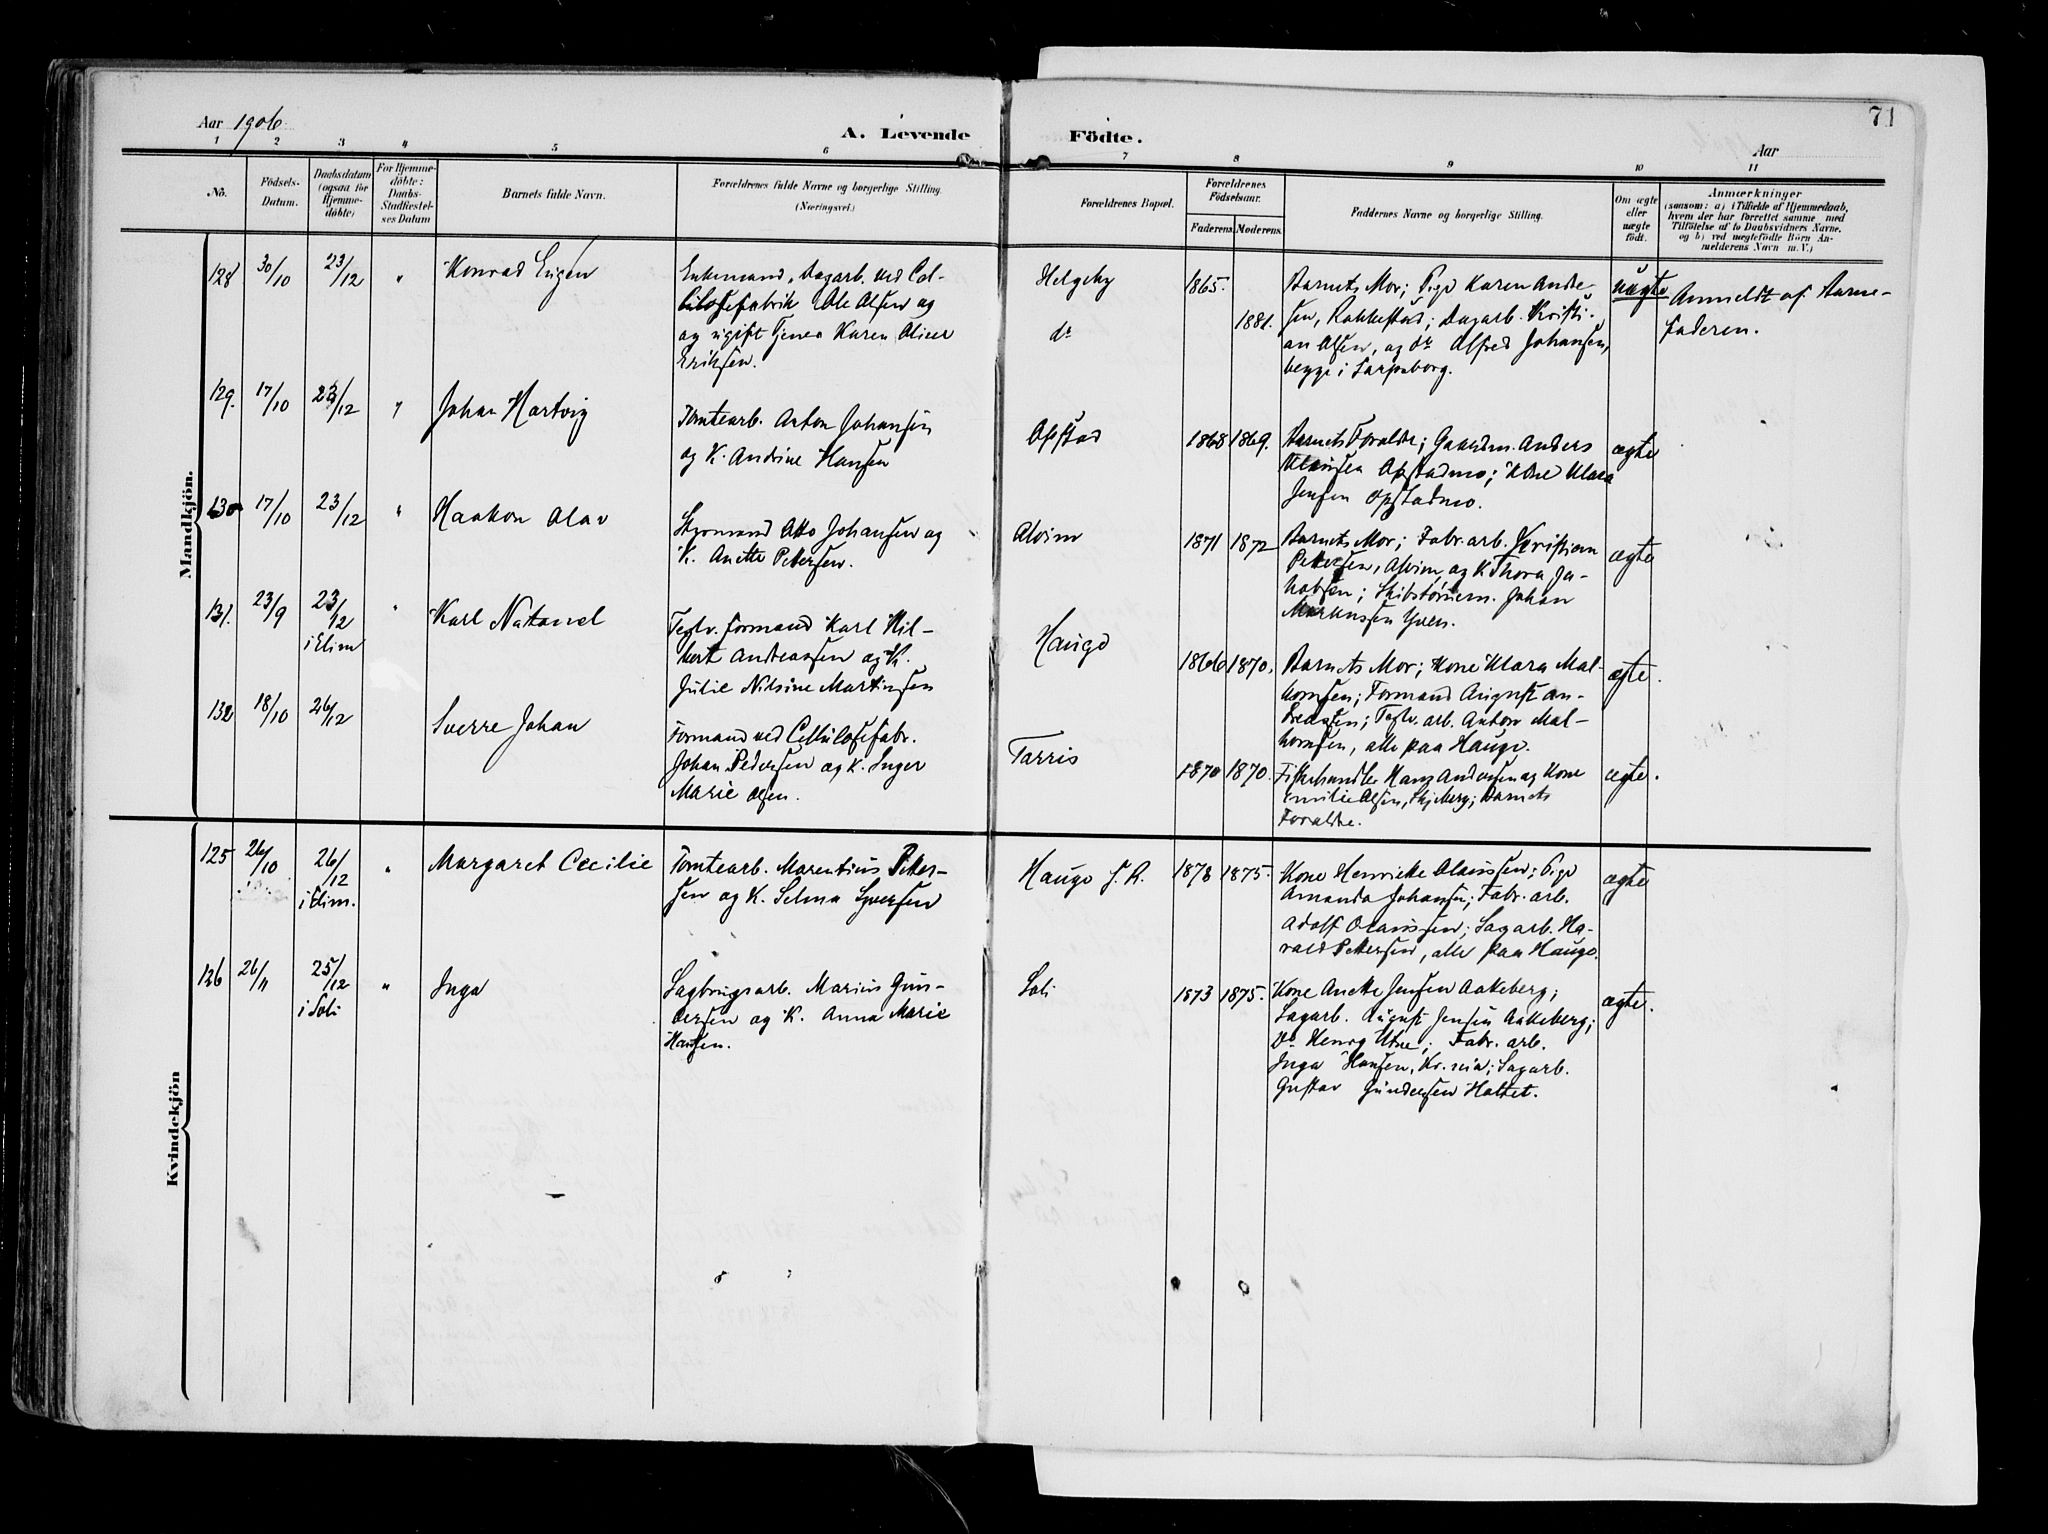 71
Aar 1906
A. Levende Födte.
Aar
1 2 3 4 5 6 7 8 9 10 11
No.
Födsels-
Datum.
Daabsdatum
(ogsaa for
Hjemme-
döbte)
For Hjemme-
döbte:
Daabs-
Stadfæstel-
ses Datum
Barnets fulde Navn.
Forældrenes fulde Navne og borgerlige Stilling.
(Næringsvei.)
Forældrenes Bopæl.
Forældrenes
Födselsaar.
Faderens Moderens.
Faddernes Navne og borgerlige Stilling.
Om ægte
eller
uægte
födt.
Anmærkninger
(saasom: a) i Tilfælde af Hjemmedaab,
hvem der har forrettet samme, med
Tilföielse af to Daabsvidners Navne.
og b) ved uægtefödte Börn An-
melderens Navn m. V.)
Mandkjön.
128 30/10 23/12 " Konrad Eugen
Enkemand, Dagarb. ved Cel-
lulosefabrik Ole Olsen og
og ugift Tjener Karen Oliver
Eriksen.
Helgeby 1865.
do 1881.
Barnets Mor; Pige Karen Andre-
sen, Rakkestad; Dagarb. Kristi-
an Olsen, og do Alfred Johansen,
begge i Sarpsborg.
uægte
Anmeldt af Barne-
faderen.
129. 17/10 23/12 " Johan Hartvig
Tomtearb. Anton Johansen
og K. Andrine Hansen
Opstad 1868 1869.
Barnets Forældre; Gaardm. Anders
Olaussen Opstadmo; Kone Klara
Jensen Opstadmo.
ægte
130 17/10 23/12 " Haakon Olav
Styrmand Otto Johansen og
K. Anette Pettersen.
Alvim 1871 1872
Barnets Mor; Fabr. arb. Kristian
Pettersen, Alvim, og K. Thora Ja-
kobsen; Skibstømerm. Johan
Markussen Yven.
ægte
131. 23/9 23/12 " Karl Natanael
i Elim
Teglv. formand Karl Hil-
bert Andreassen og K.
Julie Nilsine Martinsen
Hauge 1866 1870.
Barnets Mor; Kone Klara Mal-
komsen; Formand August An-
dreassen; Teglv. arb. Anton Mal-
komsen, alle paa Hauge.
ægte.
132 18/10 26/12 Sverre Johan
Formand ved Cellulosefabr.
Johan Pedersen og K. Inger
Marie Olsen.
Tarris 1870 1870.
Fiskehandler Hans Andersen og Kone
Emilie Olsen, Skjeberg; Barnets
Forældre.
ægte.
Kvindekjön
125 26/10 26/12 " Margaret Cecilie
i Elim.
Tomtearb. Marentius Petter-
sen og K. Selma Syversen
Hauge S. R. 1878 1875.
Kone Henriette Olaussen; Pige
Amanda Johansen; Fabr. arb.
Adolf Olaussen; Sagarb. Ha-
rald Pettersen, alle paa Hauge.
ægte
126 26/11 25/12 " Inga
i Soli
Sagbrugsarb. Marius Gun-
dersen og K. Anna Marie
Hansen.
Soli 1873 1875.
Kone Anette Jensen Aakeberg;
Sagarb. August Jensen Aakeberg;
do Henry Utne; Fabr. arb.
Inga Hansen, Kr.nia; Sagarb.
Gustav Gundersen Hattet.
ægte.